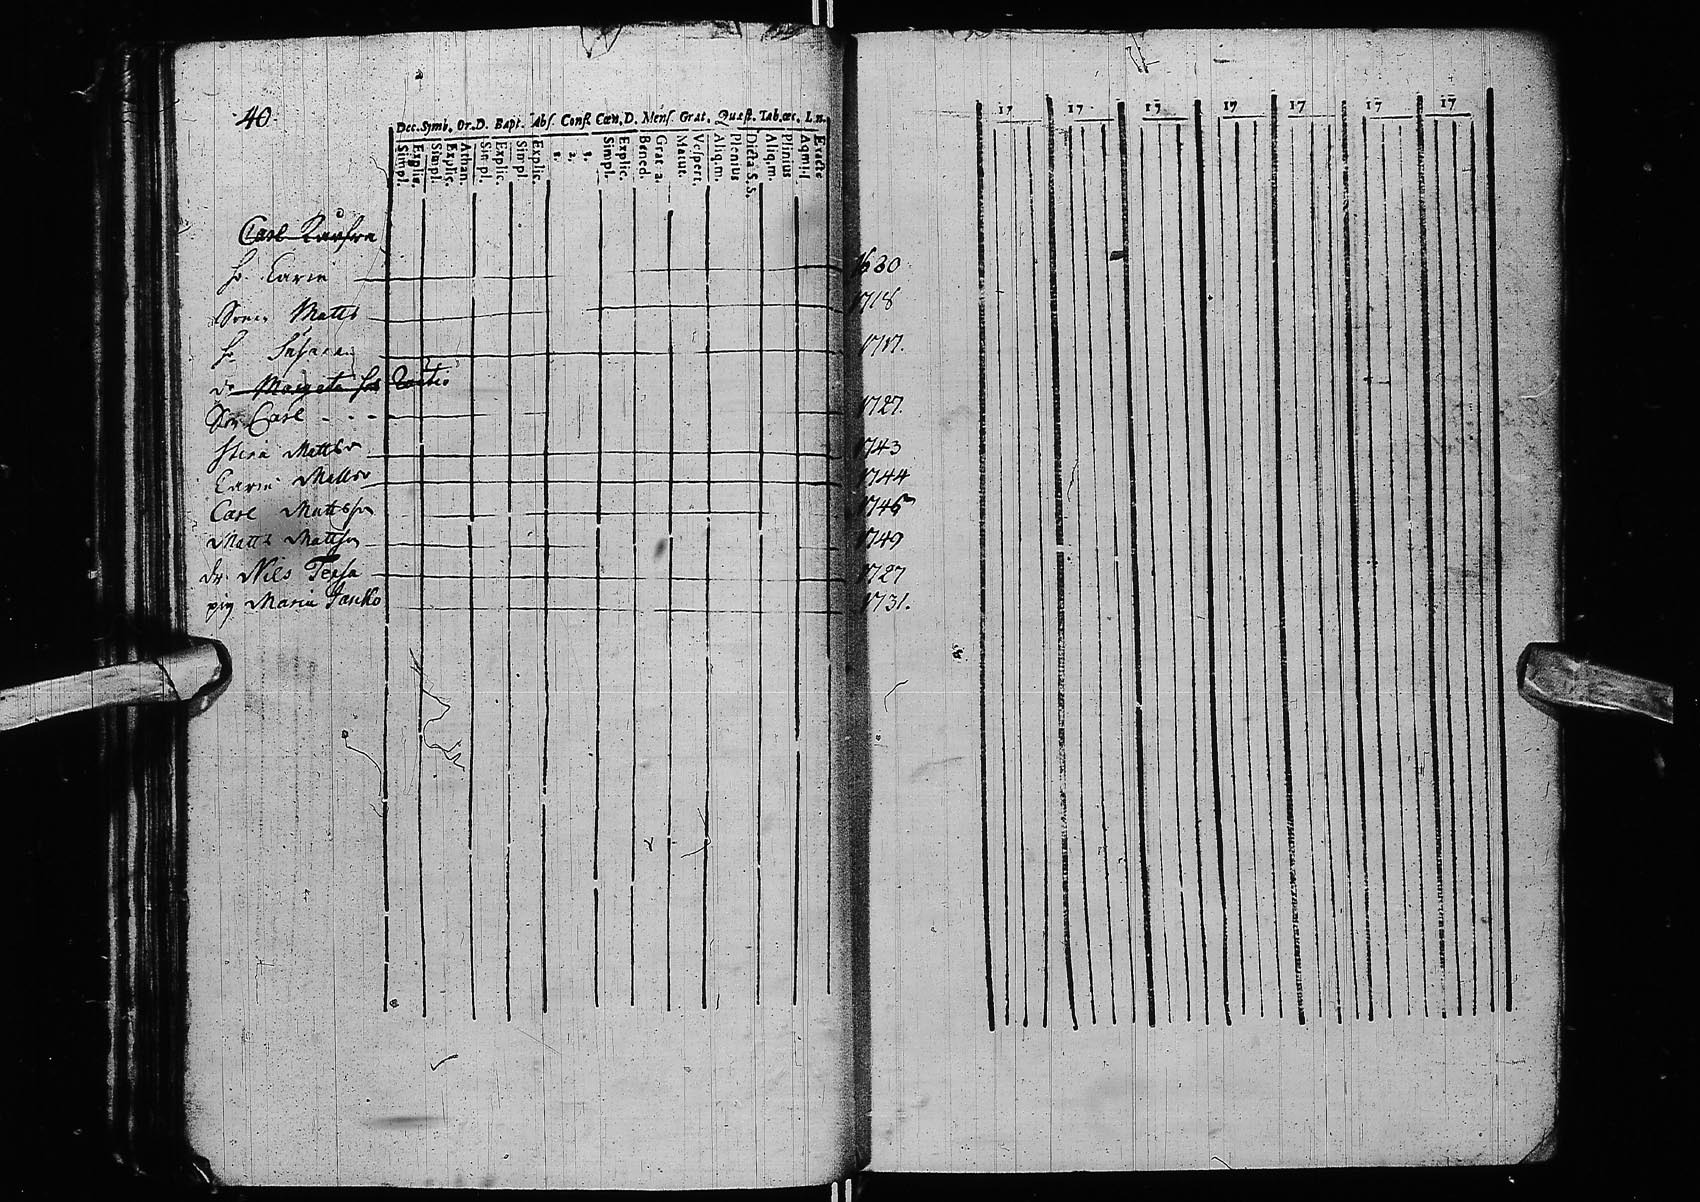 40
Dec. Symb. Or. D. Bapt. Abs. Conf. Cœn. D. Mens. Grat. Quæst. Tab. œc. L. n.
Simpl. Explic. Simpl. Explic. Athan. Simpl. Explic. Simpl. Explic. 1. 2. 3. Simpl. Explic. Bened. Grat. a. Matut. Vespert. Aliq. m. Plenius Dicta S. S. Aliq. m. Plenius Exacte
17 17 17 17 17 17 17
Carl
h. Carin 1680
Sonen Matts 1718
h. 1717.
dr Margeta
Son Carl - - - 1727.
Stina Mattsdr 1743
Carin Mattsdr 1744
Carl Mattsson 1746
Matts Mattson 1749
dr. Nils 1727
pig Maria 1731.